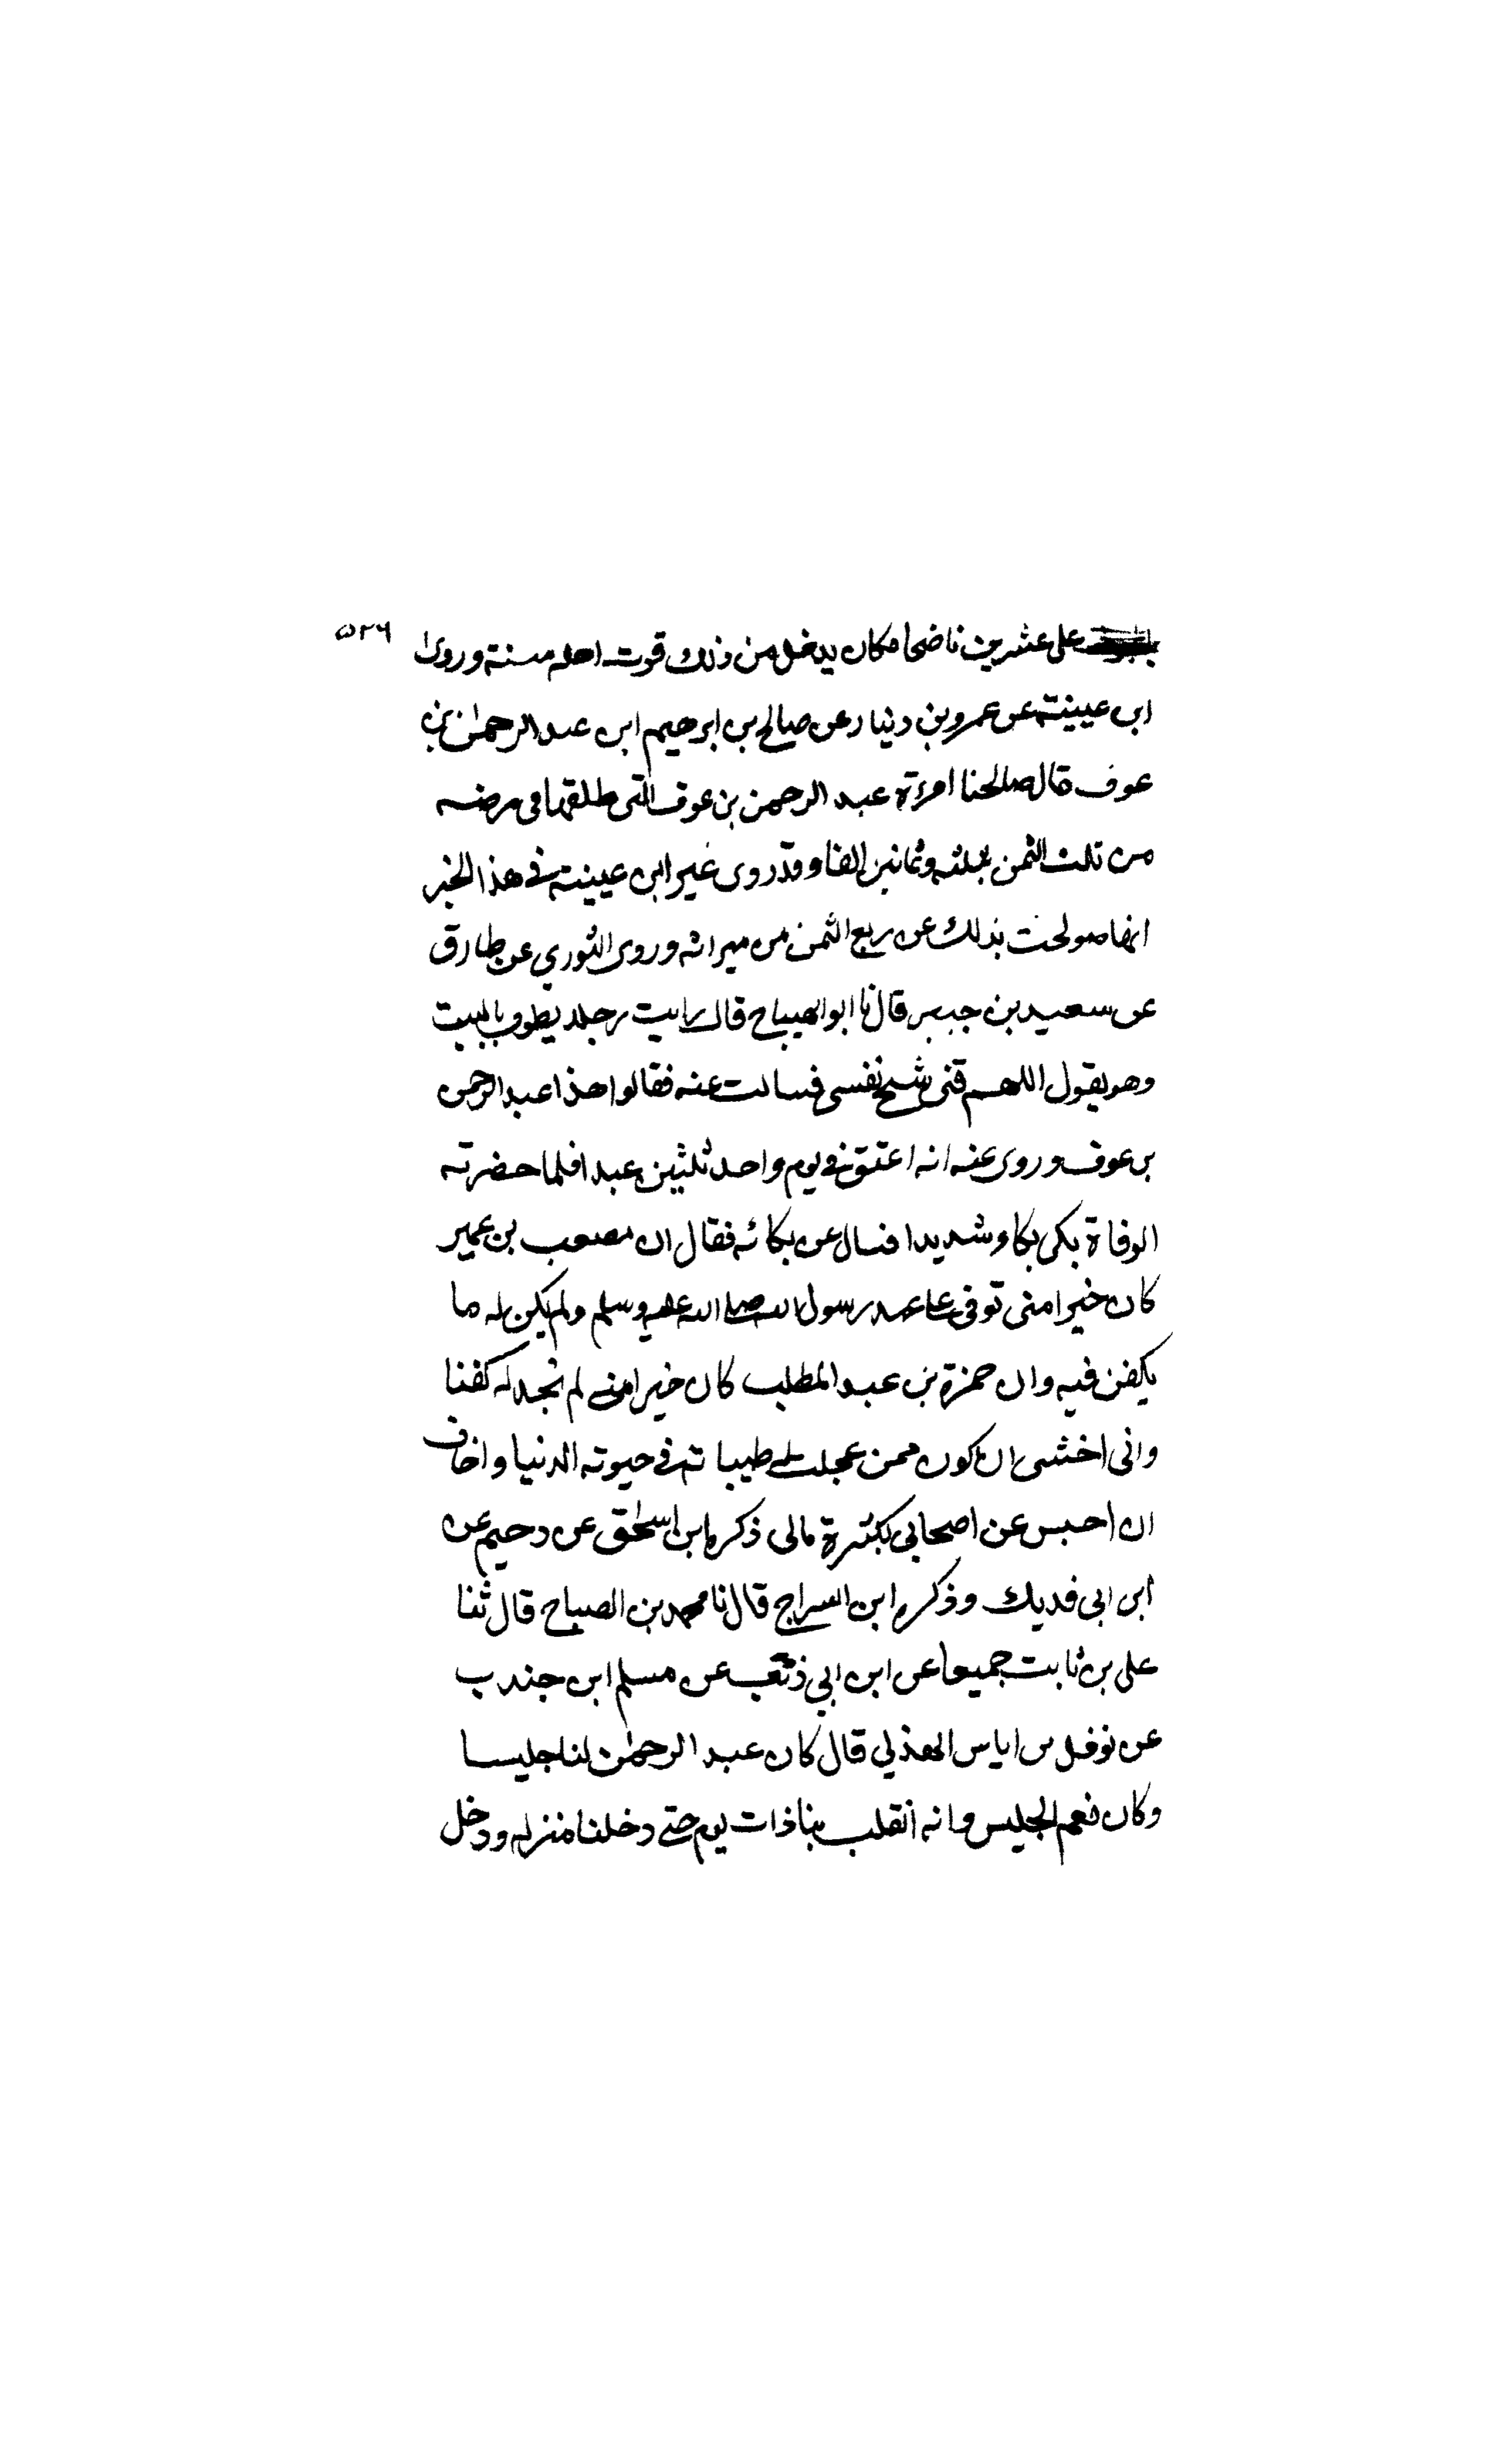 ٥٢٦
على عشرين ناضحا فكان يدخل من ذلك قوت اهله سنة وروى
ابن عيينة عن عمرو بن دينار عن صالح بن ابرهيم ابن عبد الرحمٰن بن
عوف قال صالحنا امرءة عبد الرحمن بن عوف التى طلقها فى مرضه
من ثلث الثمن بثلثه وثمانين الفا وقد روى غير ابن عيينة في هذا الخبر
انها صولحت بذلك عن ربع الثمن من ميراثه وروى الثوري عن طارق
عن سعيد بن جبير قال نا ابو الهيباح قال رايت رجلا يطوف بالبيت
وهو يقول اللهم قنى شح نفسى فسالت عنه فقالوا هذا عبد الرحمن
بن عوف وروى عنه انه اعتق في يوم واحد ثلثين عبدا فلما حضرته
الوفاة بكى بكاء شديدا فسال عن بكائه فقال ان مصعب بن عمير
كان خيرا منى توفى على عهد رسول الله صلى الله عليه وسلم ولم يكن له ما
يكفن فيه وان حمزة بن عبد المطلب كان خيرا منى لم نجد له كفنا
وانى اخشى ان اكون ممن عجلت له طيباته في حيوته الدنيا واخاف
ان احبس عن اصحابي بكثرة مالى ذكره ابن اسحٰق عن دحيم عن
ابن ابى فديك وذكره ابن السراج قال نا محمد بن الصباح قال ثنا
على بن ثابت جميعا عن ابن ابي ذئب عن مسلم ابن جندب
عن نوفل بن اياس الهذلي قال كان عبد الرحمٰن لنا جليسا
وكان نعم الجليس وانه انقلب بنا ذات يوم حتى دخلنا منزله ودخل